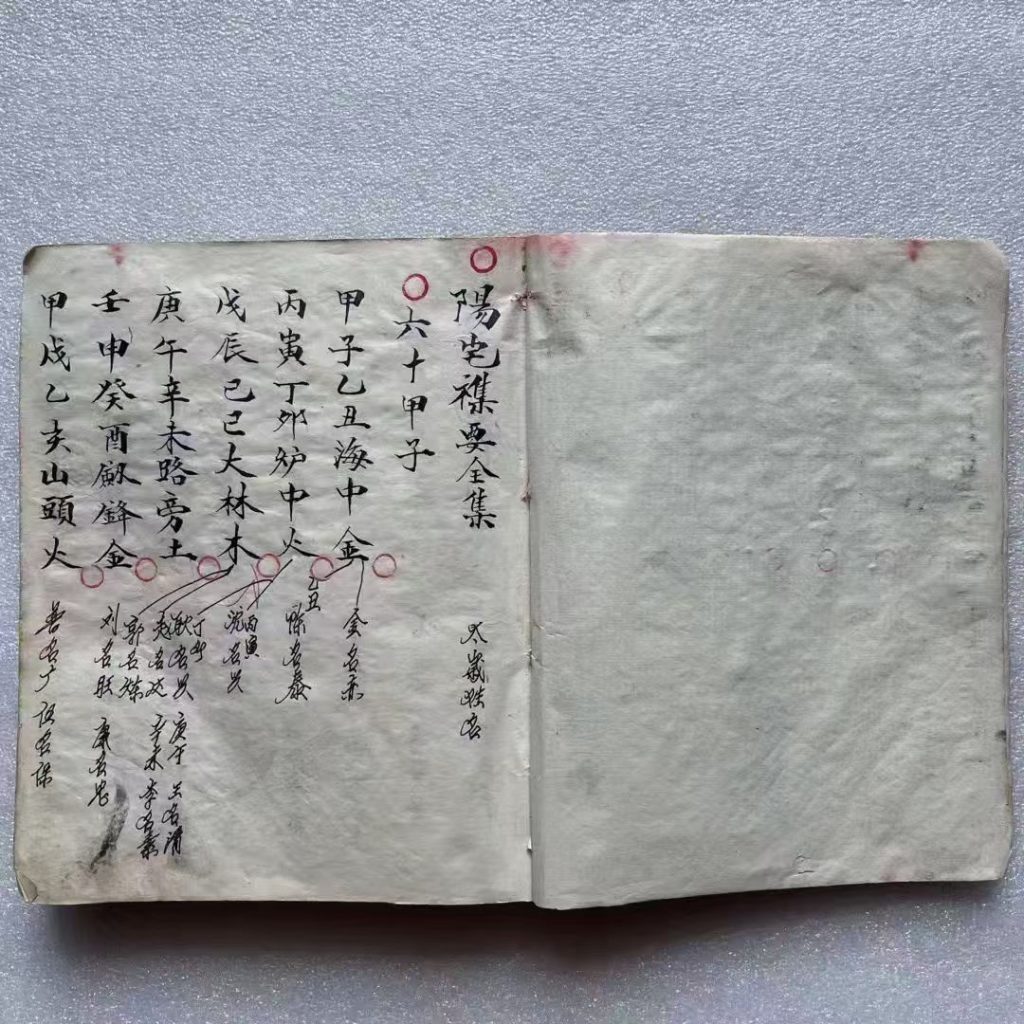 陽宅襍要全集
太歲姓名
六十甲子
甲子乙丑海中金
金名赤
丙寅丁卯炉中火
乙丑
陳名泰
戊辰己巳大林木
丙寅
沈名兴
丁卯
耿名兴
庚午辛未路旁土
庚午 王名清
辛未 李名素
壬申癸酉劍鋒金
郭名燦
刘名旺 康名忠
甲戌乙亥山頭火